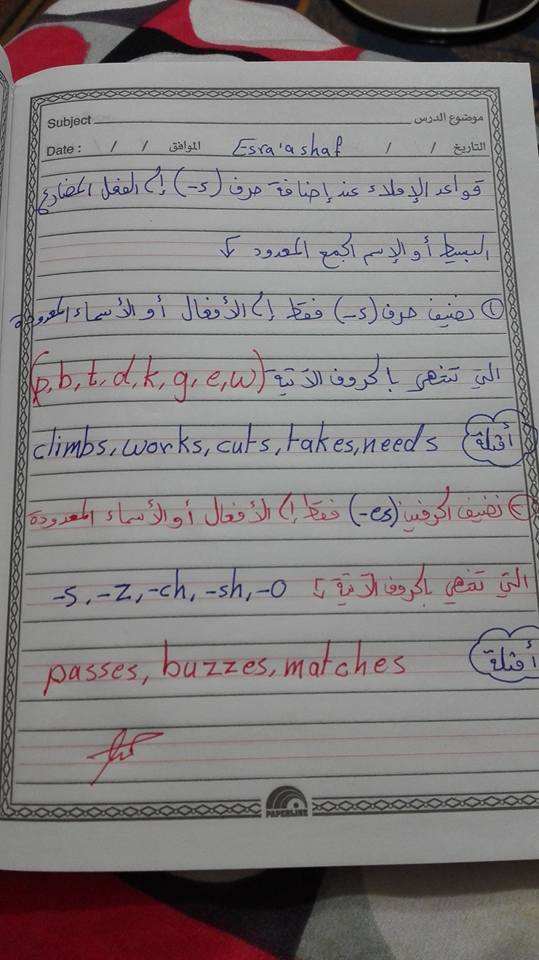 Subject موضوع الدرس
Date : / / الموافق Esra'a shaf / / التاريخ
قواعد الإملاء عند إضافة حرف (s-) إلى الفعل المضارع
البسيط أو الإسم الجمع المعدود ↓
① نضيف حرف (s-) فقط إلى الأفعال أو الأسماء المعدودة
التي تنتهي بالحروف الآتية (p, b, t, d, k, g, e, w)
أمثلة climbs, works, cuts, takes, needs
② نضيف الحرفين (es-) فقط إلى الأفعال أو الأسماء المعدودة
التي تنتهي بالحروف الآتية ↓ -s, -z, -ch, -sh, -o
أمثلة passes, buzzes, matches
PAPERLINE